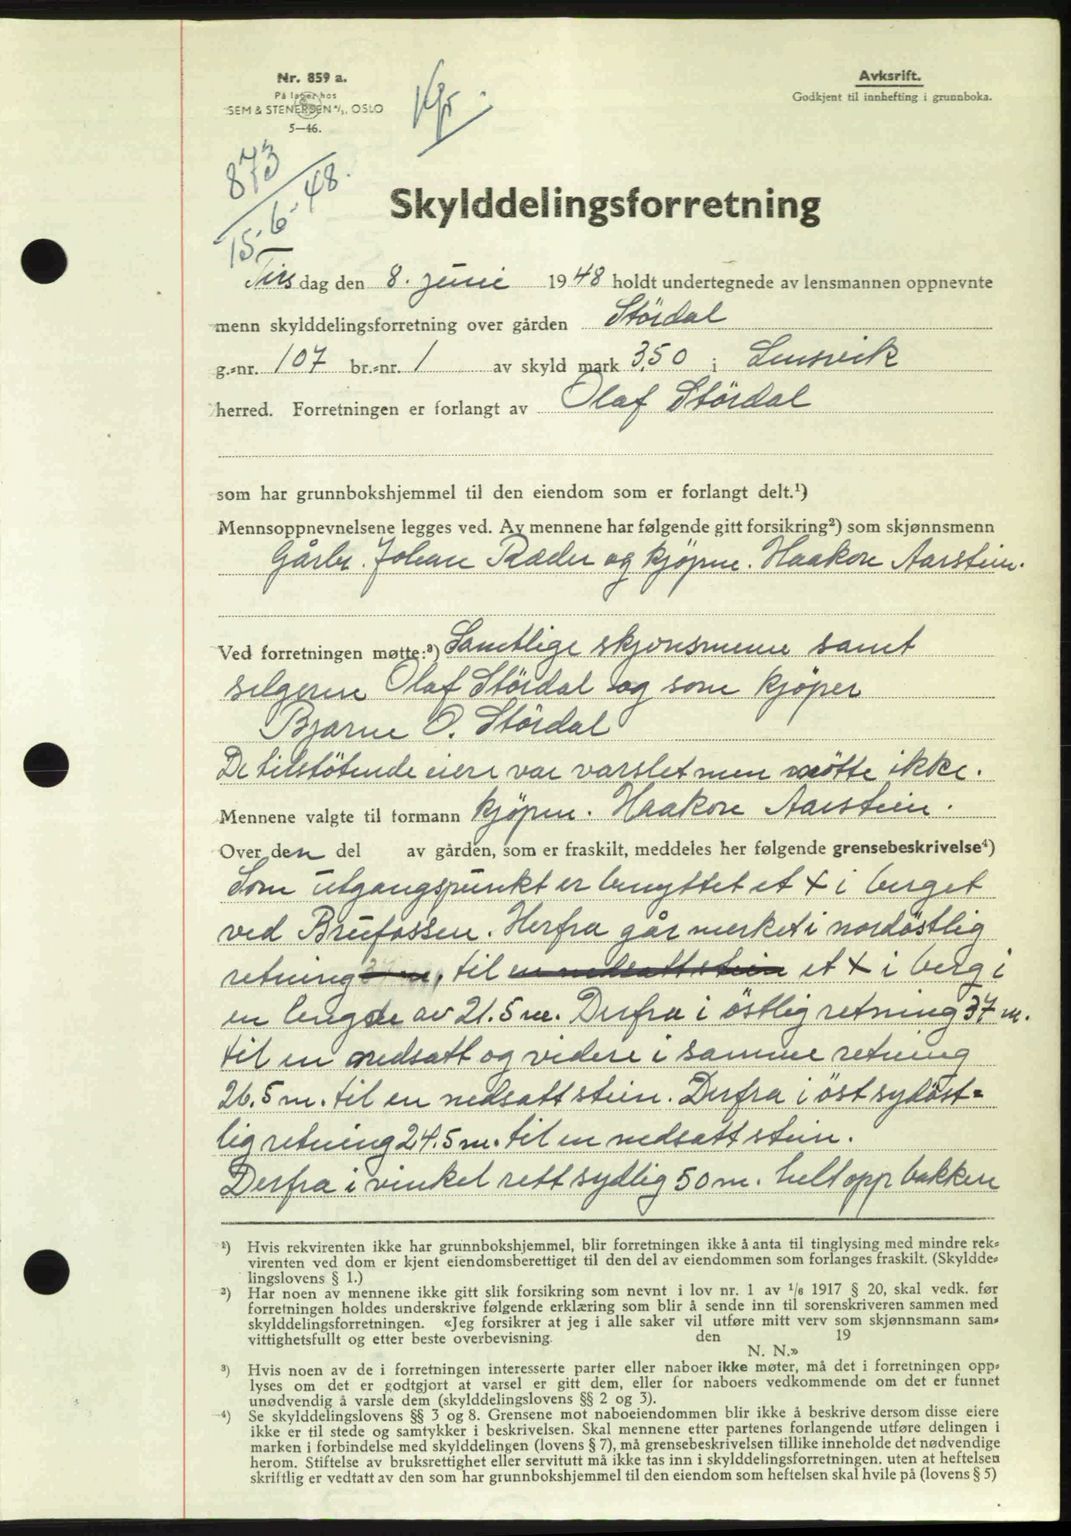 Nr. 859 a.
På lager hos
SEM & STENERSEN A/S, OSLO
5—46.
Kfr.
Avksrift.
Godkjent til innhefting i grunnboka.
873
15-6-48.
Skylddelingsforretning
Tirsdag den 8. juni 1948 holdt undertegnede av lensmannen oppnevnte
menn skylddelingsforretning over gården Stördal
g.-nr. 107 br.-nr. 1 av skyld mark 3,50 i Lensvik
herred. Forretningen er forlangt av Olaf Stördal
som har grunnbokshjemmel til den eiendom som er forlangt delt.¹)
Mennsoppnevnelsene legges ved. Av mennene har følgende gitt forsikring²) som skjønnsmenn
Gårbr. Johan Ræder og kjöpm. Haakon Aarstein.
Ved forretningen møtte:³) Samtlige skjönsmenn samt
selgeren Olaf Stördal og som kjöper
Bjarne O. Stördal
De tilstötende eiere var varslet men mötte ikke.
Mennene valgte til formann kjöpm. Haakon Aarstein.
Over den del av gården, som er fraskilt, meddeles her følgende grensebeskrivelse⁴)
Som utgangspunkt er benyttet et X i berget
ved Brufossen. Herfra går merket i nordöstlig
retning, til en nedsatt stein et X i berg i
en lengde av 21.5 m. Derfra i östlig retning 37 m.
til en nedsatt og videre i samme retning
26.5 m. til en nedsatt stein. Derfra i öst sydöst-
lig retning 24.5 m. til en nedsatt stein.
Derfra i vinkel rett sydlig 50 m. helt opp bakken
¹) Hvis rekvirenten ikke har grunnbokshjemmel, blir forretningen ikke å anta til tinglysing med mindre rek-
virenten ved dom er kjent eiendomsberettiget til den del av eiendommen som forlanges fraskilt. (Skyldde-
lingslovens § 1.)
²) Har noen av mennene ikke gitt slik forsikring som nevnt i lov nr. 1 av ¹/₆ 1917 § 20, skal vedk. før
forretningen holdes underskrive følgende erklæring som blir å sende inn til sorenskriveren sammen med
skylddelingsforretningen. «Jeg forsikrer at jeg i alle saker vil utføre mitt verv som skjønnsmann sam-
vittighetsfullt og etter beste overbevisning. den 19
N. N.»
³) Hvis noen av de i forretningen interesserte parter eller naboer ikke møter, må det i forretningen opp-
lyses om det er godtgjort at varsel er gitt dem, eller for naboers vedkommende om det er funnet
unødvendig å varsle dem (skylddelingslovens §§ 2 og 3).
⁴) Se skylddelingslovens §§ 3 og 8. Grensene mot naboeiendommen blir ikke å beskrive dersom disse eiere
ikke er til stede og samtykker i beskrivelsen. Skal mennene etter partenes forlangende utføre delingen i
marken i forbindelse med skylddelingen (lovens § 7), må grensebeskrivelsen tillike inneholde det nødvendige
herom. Stiftelse av bruksrettighet eller servitutt må ikke tas inn i skylddelingsforretningen. uten at heftelsen
skriftlig er vedtatt av den som har grunnbokshjemmel til den eiendom som heftelsen skal hvile på (lovens § 5)